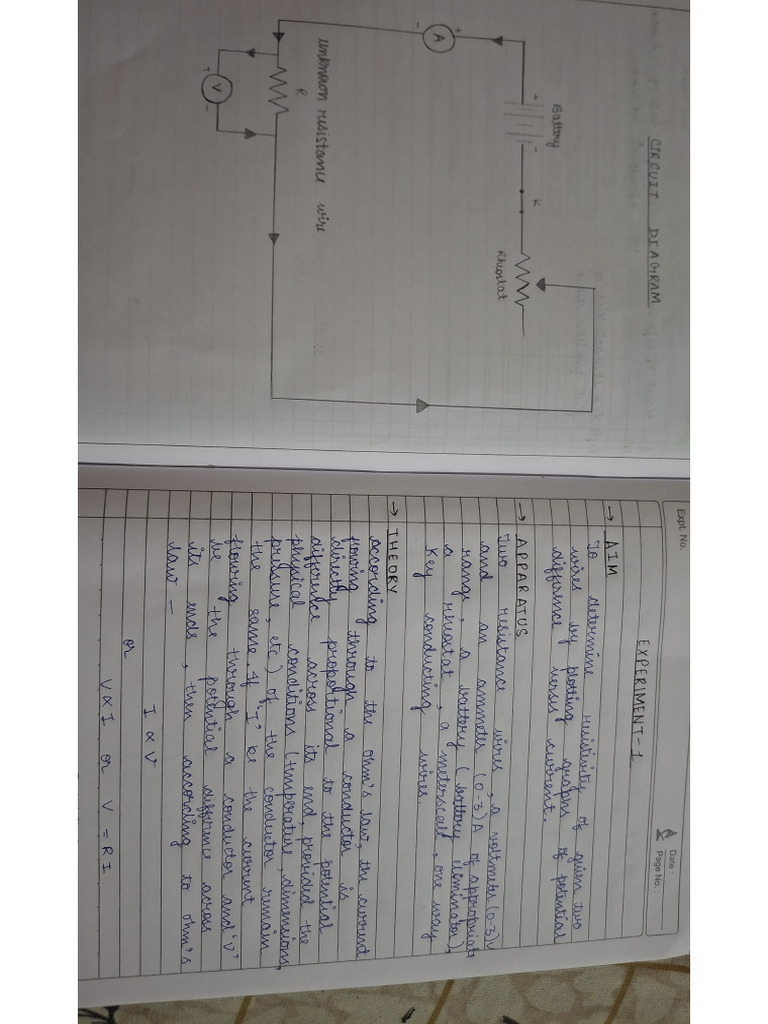 CIRCUIT DIAGRAM
Battery
+
-
K
Rheostat
A
+
-
unknown resistance wire
R
V
+
-
Expt. No.
Date :
Page No. :
EXPERIMENT-1
→ AIM
To determine resistivity of given two
wires by plotting graphs of potential
difference versus current.
→ APPARATUS
Two resistance wires, a voltmeter (0-3)V
and an ammeter (0-3)A of appropriate
range, a battery (battery eleminator),
a rheostat, a meterscale, one way
Key conducting wires.
→ THEORY
according to the ohm's law, the current
flowing through a conductor is
directly proportional to the potential
difference across its end, provided the
physical conditions (temperature, dimensions,
pressure, etc) of the conductor remain
the same. If 'I' be the current
flowing through a conductor and 'V'
be the potential difference across
its ends, then according to ohm's
law -
I ∝ V
or
V ∝ I or V = RI